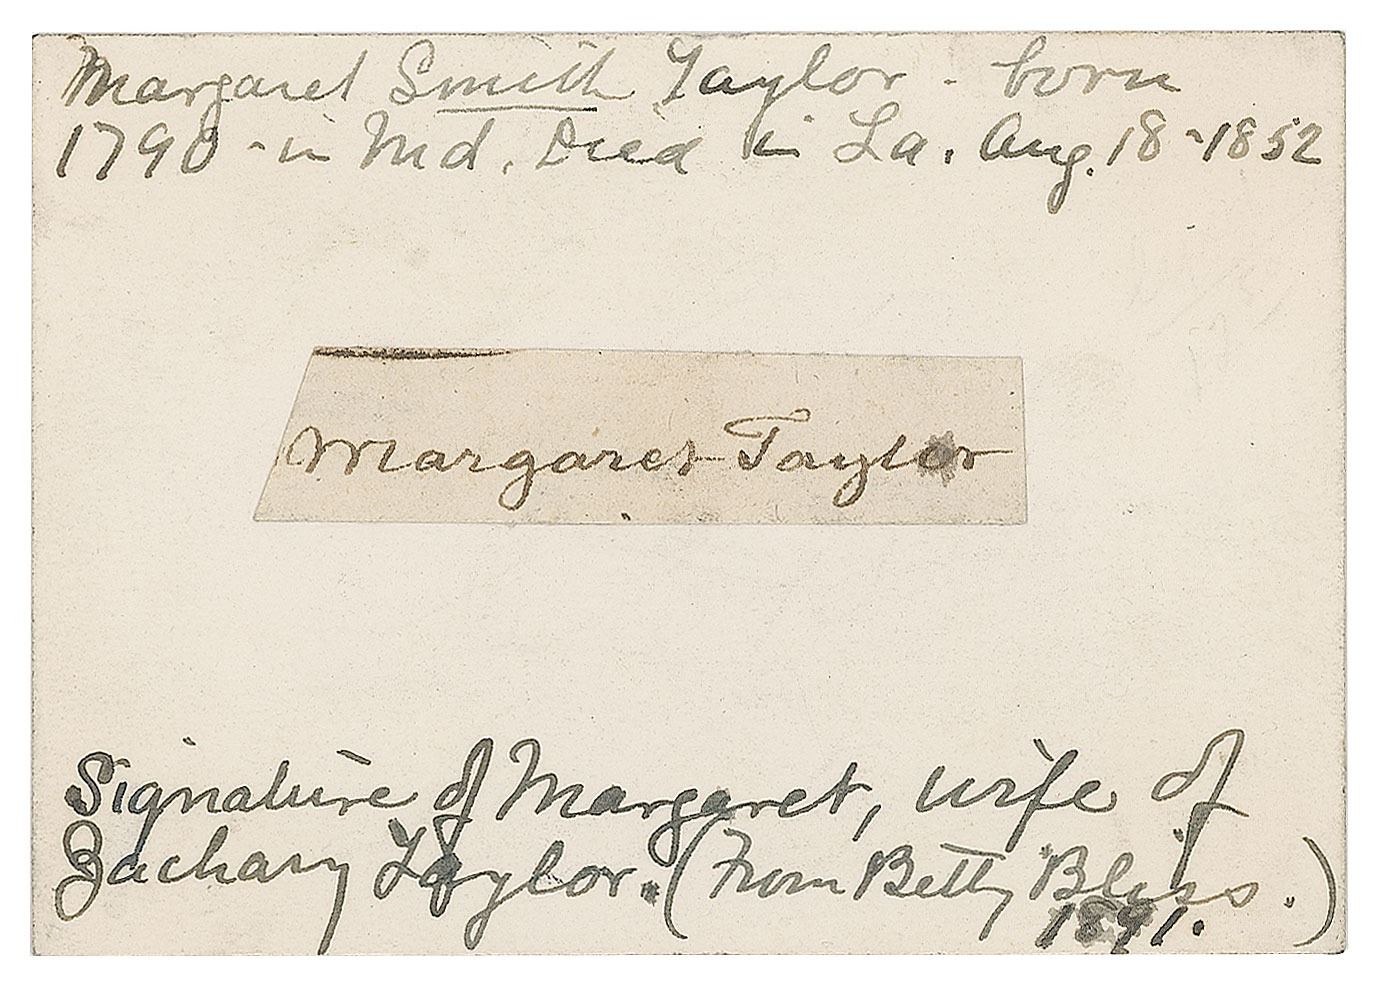 Margaret Smith Taylor - born
1790 - in Md. Died in La. Aug. 18 - 1852
Margaret Taylor
Signature of Margaret, wife of
Zachary Taylor. (From Betty Bliss.)
1891.